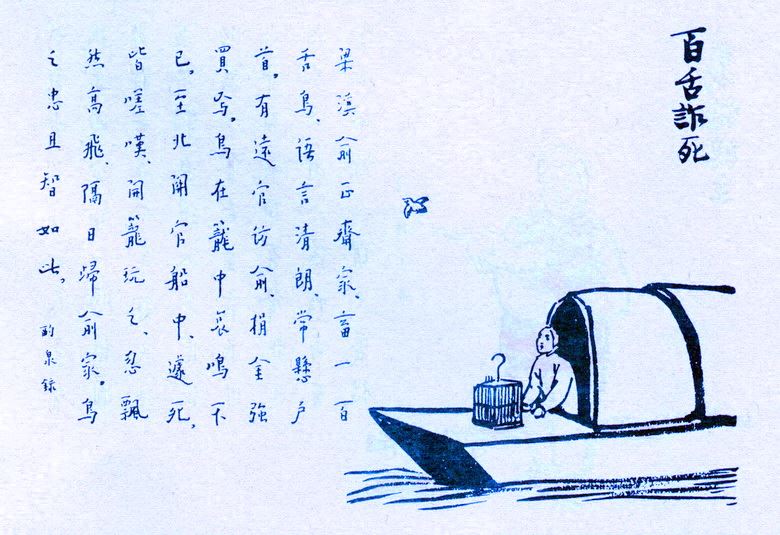 百舌詐死
梁溪俞正齋家、畜一百
舌鳥、語言清朗、常懸戶
首。有遠官訪俞、捐金強
買焉。鳥在籠中哀鳴不
已。至北關官船中、遽死、
皆嗟嘆、開籠玩之、忽飄
然高飛、隔日歸俞家。鳥
之忠且智如此。
酌泉錄